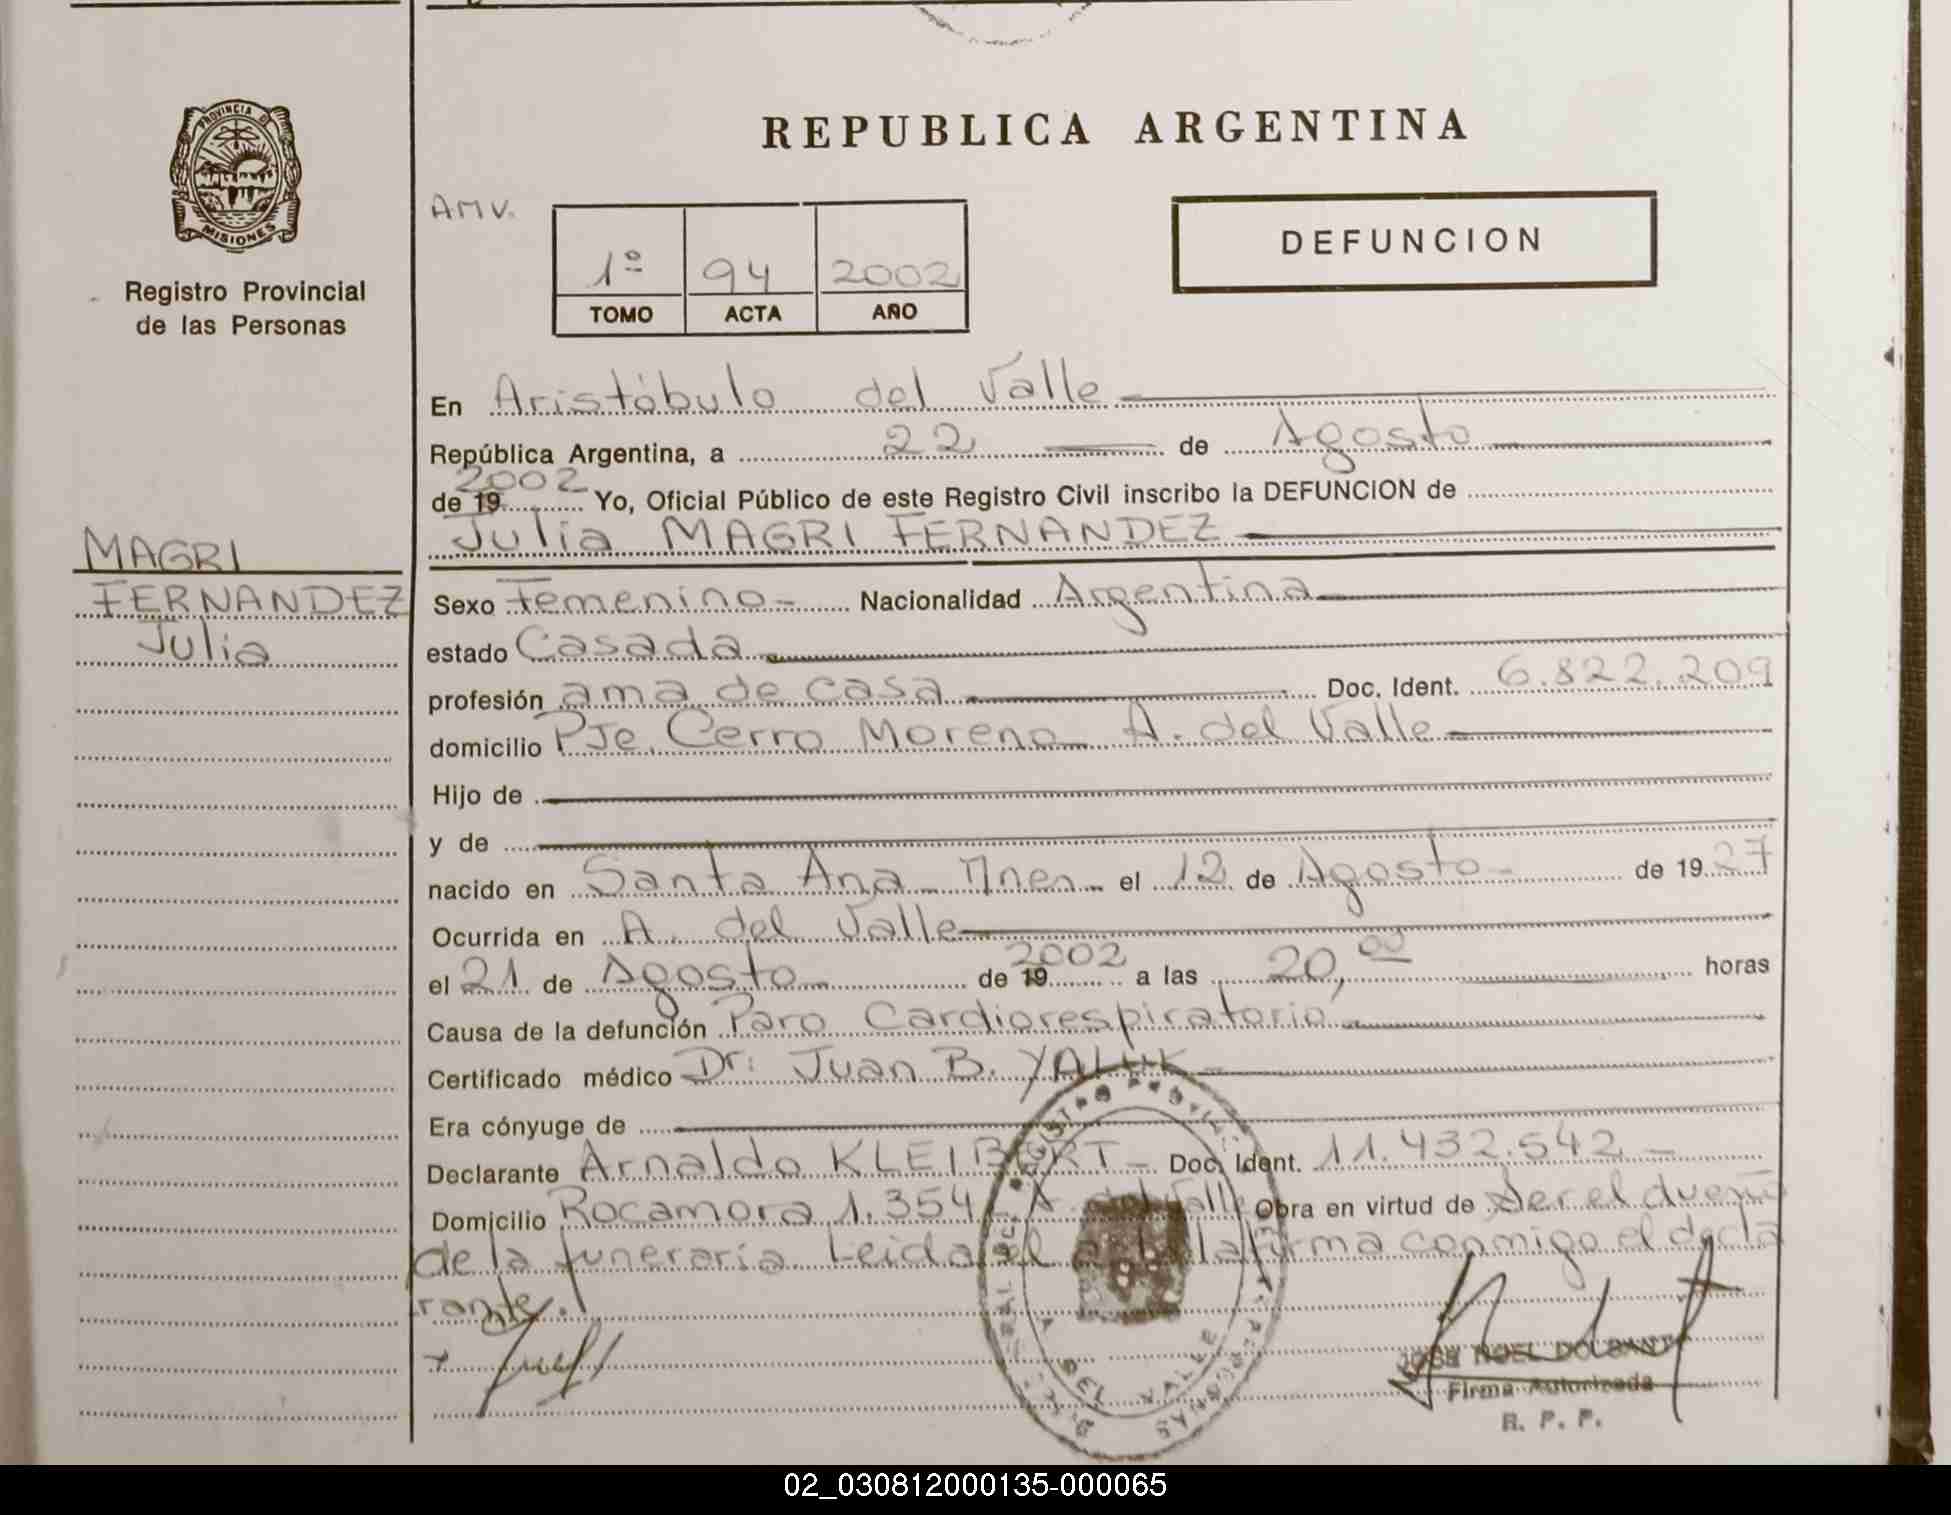 PROVINCIA D
MISIONES
Registro Provincial
de las Personas
REPUBLICA ARGENTINA
AMV.
1º 94 2002
TOMO ACTA AÑO
DEFUNCION
En Aristóbulo del Valle
República Argentina, a 22 de Agosto
de 19 2002 Yo, Oficial Público de este Registro Civil inscribo la DEFUNCION de
Julia MAGRI FERNANDEZ
MAGRI
FERNANDEZ
Julia
Sexo Femenino- Nacionalidad Argentina
estado Casada
profesión ama de casa Doc. Ident. 6.822.209
domicilio Pje. Cerro Moreno A. del Valle
Hijo de
y de
nacido en Santa Ana Mnes el 12 de Agosto de 19 27
Ocurrida en A. del Valle
el 21 de Agosto de 19 2002 a las 20,00 horas
Causa de la defunción Paro Cardiorespiratorio
Certificado médico Dr: Juan B. YALUK
Era cónyuge de
Declarante Arnaldo KLEIBERT Doc. Ident. 11.432.542
Domicilio Rocamora 1.354 A. del Valle Obra en virtud de Ser el dueño
de la funeraria Leida el acta la firma conmigo el decla
rante.
DEL VALLE
JOSE NOEL
Firma Autorizada
R. P. P.
02_030812000135-000065